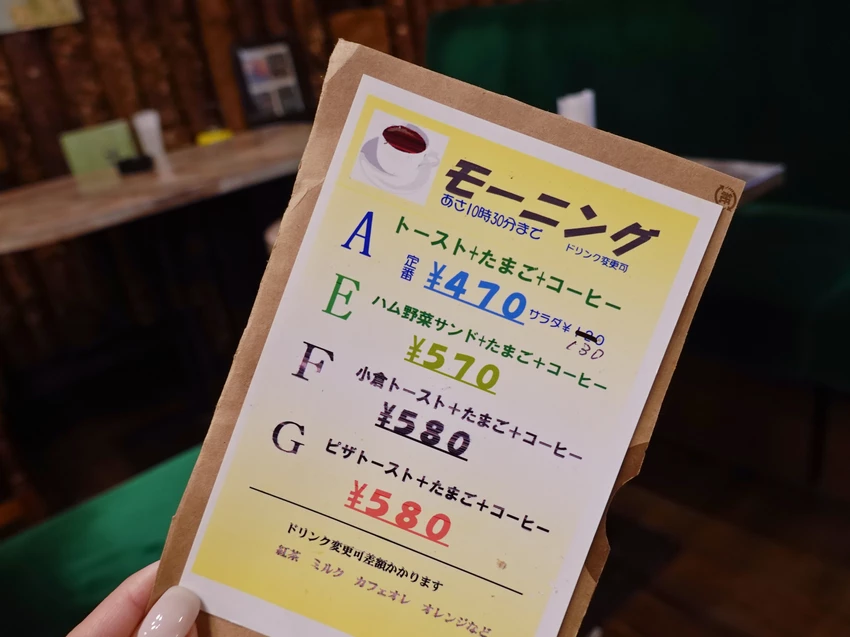 モーニング
あさ10時30分まで
ドリンク変更可
A トースト+たまご+コーヒー
定番 ¥470 サラダ¥
130
E ハム野菜サンド+たまご+コーヒー
¥570
F 小倉トースト+たまご+コーヒー
¥580
G ピザトースト+たまご+コーヒー
¥580
ドリンク変更可差額かかります
紅茶 ミルク カフェオレ オレンジなど